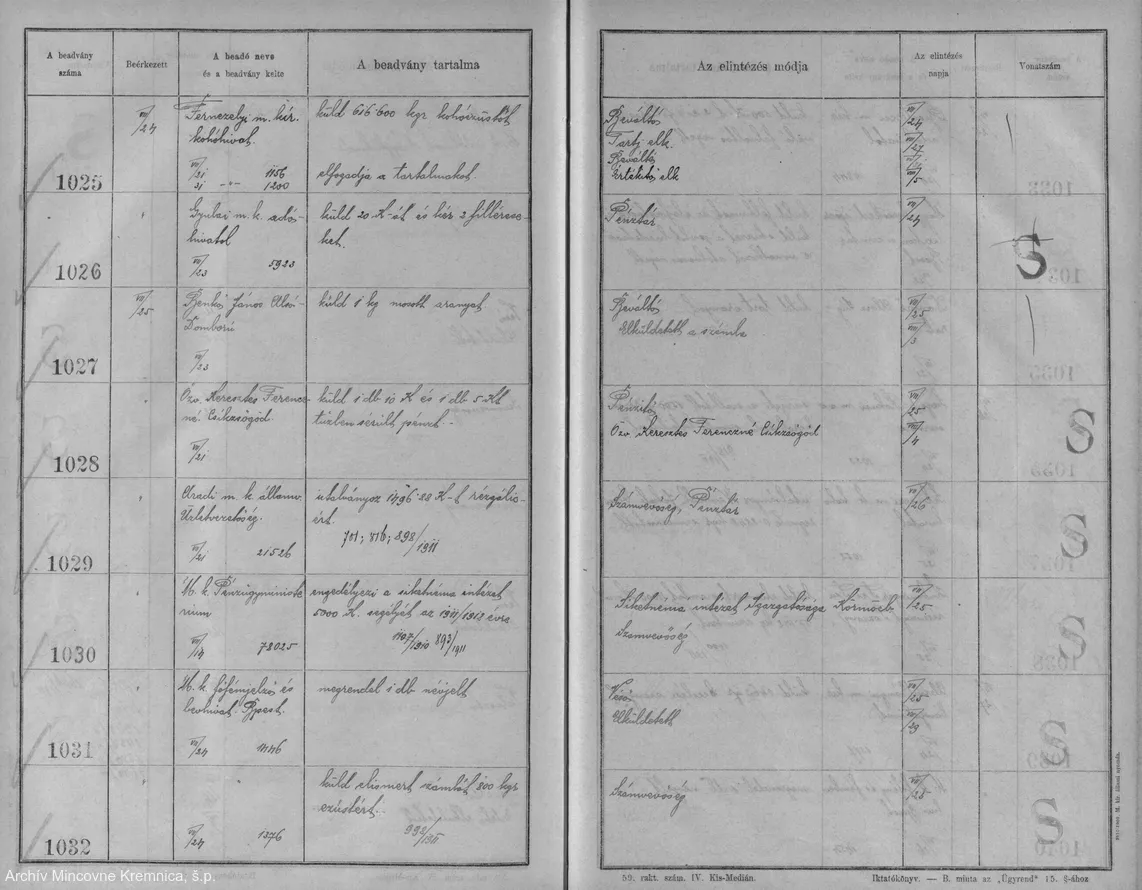 A beadvány
száma
Beérkezett
A beadó neve
és a beadvány kelte
A beadvány tartalma
Az elintézés módja
Az elintézés
napja
Vonatszám
1025
VII/24
Fernezelyi m. kir.
kohóhivat.
VII/21 1156
21 -"- 1200
küld 616·600 kgr kohóezüstöt
elfogadja a tartalmakat.
Beváltó
Tartj elk.
Beváltó
Értékítő elk
VII/24
VII/27
1026
Gyulai m. k. adó-
hivatal
VII/23 5923
küld 20 K-át és kér 2 fillérese-
ket.
Pénztár
VII/24
S
1027
VII/25
Benkő János Alsó-
Domború
VII/23
küld 1 kg mosott aranyat.
Beváltó
Elküldetett a számla
VII/25
1028
Özv. Keresztes Ferencz-
né Csikzsögöd.
VII/21
küld 1 db 10 K és 1 db 5 Kt
tüzben sérült pénzt. -
Özv. Keresztes Ferenczné Csikzsögöd
VII/25
S
1029
Aradi m. k. államv.
Üzletvezetőség.
VII/21 21526
utalványoz 1496·28 K-t rézgálic-
ért.
701; 816; 898/1911
Számvevőség, Pénztár
VII/26
S
1030
M. k. Pénzügyministe-
rium
VII/14 78025
engedélyezi a siketnéma intézet
5000 K. segélyét az 1911/1912 évre
1107/1910 893/1911
Siketnéma intézet Igazgatósága Körmöcb.
Számvevőség
VII/25
S
1031
M. k. főfémjelző és
bevhivat. Bpest.
VII/24 1446
megrendel 1 db névjelt
Véső
Elküldetett
VII/25
VII/29
S
1032
VII/24 1376
küld elismert számlát 800 kgr
ezüstért.
992/1911
Számvevőség
VII/25
S
50. rakt. szám. IV. Kis-Medián.
Iktatókönyv. — B. minta az „Ügyrend" 15. §-ához
Archív Mincovne Kremnica, š.p.